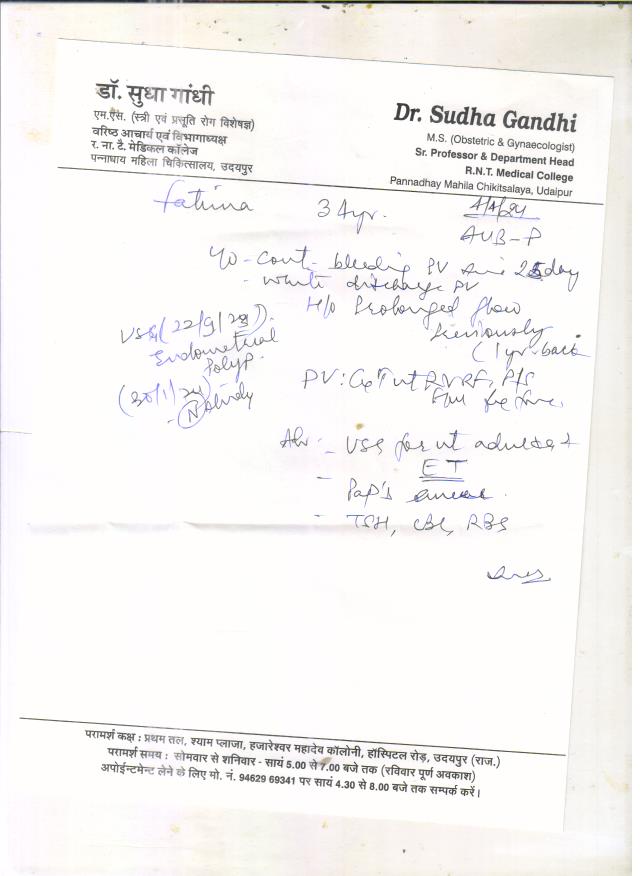 डॉ. सुधा गांधी
एम.एस. (स्त्री एवं प्रसूति रोग विशेषज्ञ)
वरिष्ठ आचार्य एवं विभागाध्यक्ष
र. ना. टै. मेडिकल कॉलेज
पन्नाधाय महिला चिकित्सालय, उदयपुर
Dr. Sudha Gandhi
M.S. (Obstetric & Gynaecologist)
Sr. Professor & Department Head
R.N.T. Medical College
Pannadhay Mahila Chikitsalaya, Udaipur
Fatima 34yr. 4/4/24
AUB-P
bleeding PV since day
- white discharge PV
H/o Prolonged flow
Previously
(1yr. back
USG (22/9/23).
Endometrial
Polyp.
(30/1/24)
- N
PV: Cx
- USG for ut adnexa +
ET
- Pap's smear.
- TSH, CBC, RBS
परामर्श कक्ष : प्रथम तल, श्याम प्लाजा, हजारेश्वर महादेव कॉलोनी, हॉस्पिटल रोड़, उदयपुर (राज.)
परामर्श समय : सोमवार से शनिवार - सायं 5.00 से 7.00 बजे तक (रविवार पूर्ण अवकाश)
अपोईन्टमेन्ट लेने के लिए मो. नं. 94629 69341 पर सायं 4.30 से 8.00 बजे तक सम्पर्क करें।